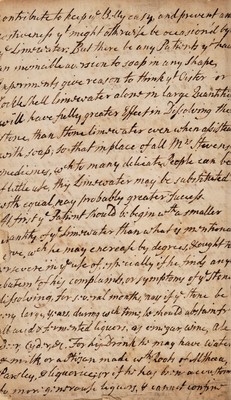 contribute to keep ye Belly easy, and prevent any
costiveness yt might otherwise be occasiond by
ye Limewater. But if there be any Patients yt have
an invincible aversion to soap in any shape,
Experiments give reason to think yt Oister or
Cockle shell limewater alone in large Quantities
will have fully greater Effect in Dissolving the
stone than stone limewater even when assisted
with soap; so that in place of all Mrs. Stevens
medicines, wch to many delicate People can be
of little use, this Limewater may be substituted
with equal, nay probably greater success.
At first ye Patient should begin wth a smaller
quantity of ye Limewater than what is mentiond
above, wch he may encrease by degrees, & ought to
persevere in ye use of, especially if he finds any
abatemt of his complaints, or symptoms of ye stone
dissolving, for several months, nay if ye stone be
very large, years, during wch time he should abstain from
all acid & fermented liquors, as vinegar, wine, Ale
Beer, Cyder, &c. For his drink he may have water
& milk, or a ptizan made wth Roots of Althaea,
Parsley, & liquorice; or if he has been accustomed
to more generous liquors, & cannot confine